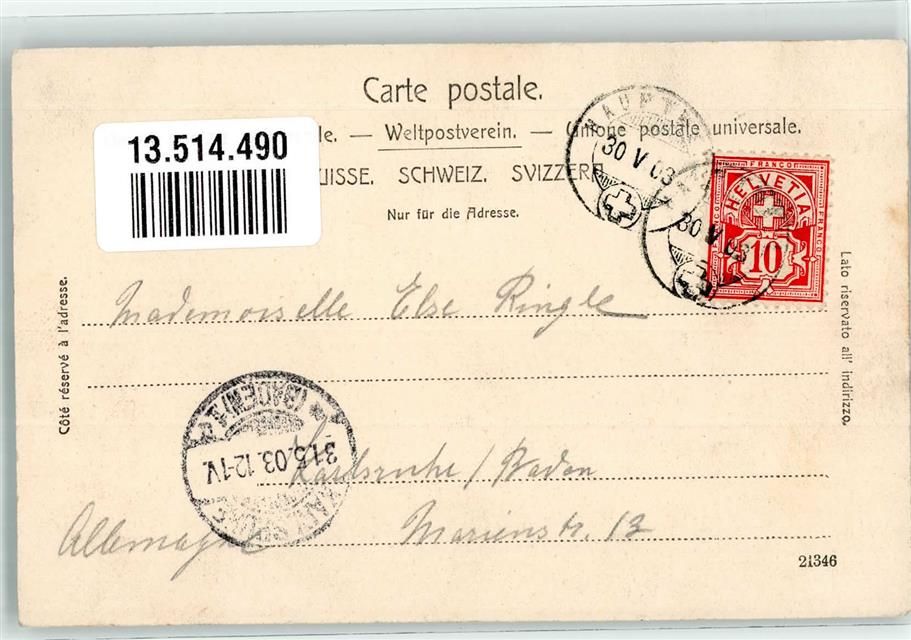 Carte postale.
le. — Weltpostverein. — Unione postale universale.
UISSE. SCHWEIZ. SVIZZERA
Nur für die Adresse.
13.514.490
HAUPT
30 V 03
30 V 03
FRANCO
HELVETIA
FRANCO
FRANCO
10
Côté réservé à l'adresse.
Lato riservato all' indirizzo.
Mademoiselle Else Ringle
(BADEN)
31.5.03.12-1V.
Karlsruhe / Baden
Allemagne Marienstr. 13
21346